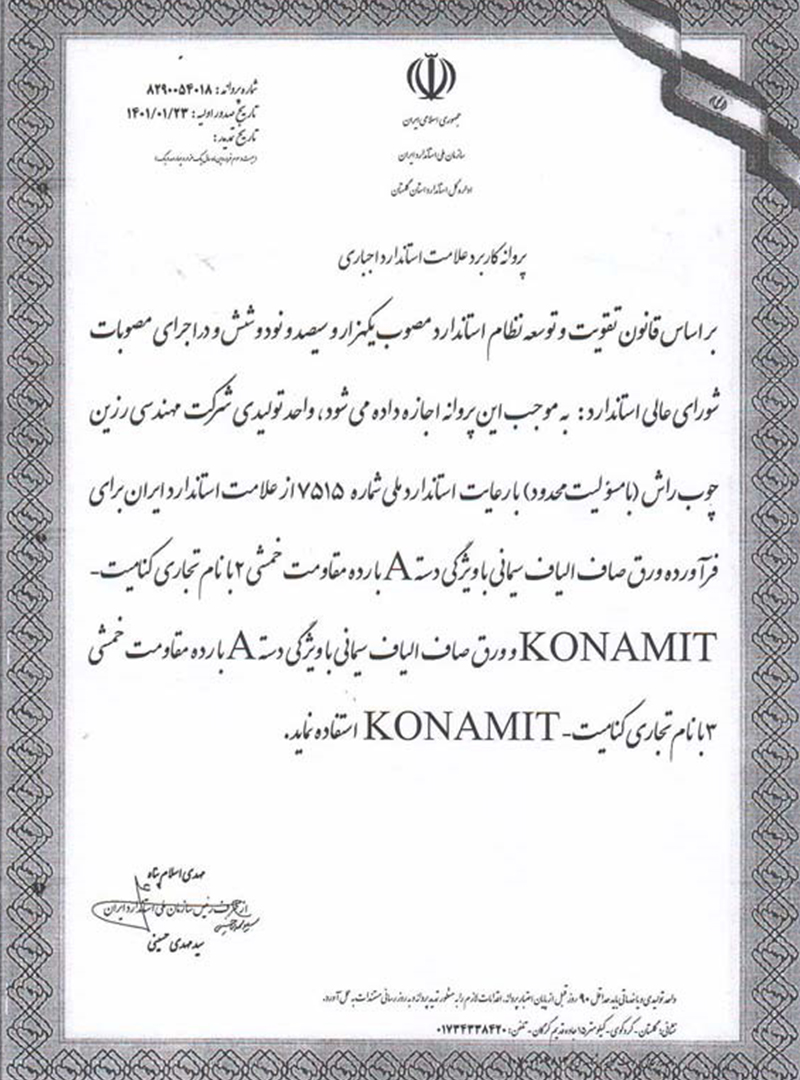 جمهوری اسلامی ایران
سازمان ملی استاندارد ایران
اداره کل استاندارد استان گلستان
شماره پروانه: ۸۲۹۰۰۵۴۰۱۸
تاریخ صدور اولیه: ۱۴۰۱/۰۱/۲۳
تاریخ تمدید:
پروانه کاربرد علامت استاندارد اجباری
بر اساس قانون تقویت و توسعه نظام استاندارد مصوب یکهزار و سیصد و نود و شش و در اجرای مصوبات
شورای عالی استاندارد: به موجب این پروانه اجازه داده می شود، واحد تولیدی شرکت مهندسی رزین
چوب راش (با مسؤلیت محدود) با رعایت استاندارد ملی شماره ۷۵۱۵ از علامت استاندارد ایران برای
فرآورده ورق صاف الیاف سیمانی با ویژگی دسته A با رده مقاومت خمشی ۲ با نام تجاری کنامیت-
KONAMIT و ورق صاف الیاف سیمانی با ویژگی دسته A با رده مقاومت خمشی
۳ با نام تجاری کنامیت-KONAMIT استفاده نماید.
مهدی اسلام پناه
از طرف رئیس سازمان ملی استاندارد ایران
سید مهدی حسینی
واحد تولیدی و یا خدماتی باید حداقل ۹۰ روز قبل از پایان اعتبار پروانه، اقدامات لازم را به منظور تمدید پروانه و به روز رسانی مستندات به عمل آورد.
نشانی: گلستان - کردکوی - کیلومتر ۱۵ جاده قدیم گرگان - تلفن: ۰۱۷۳۴۳۳۸۴۲۰